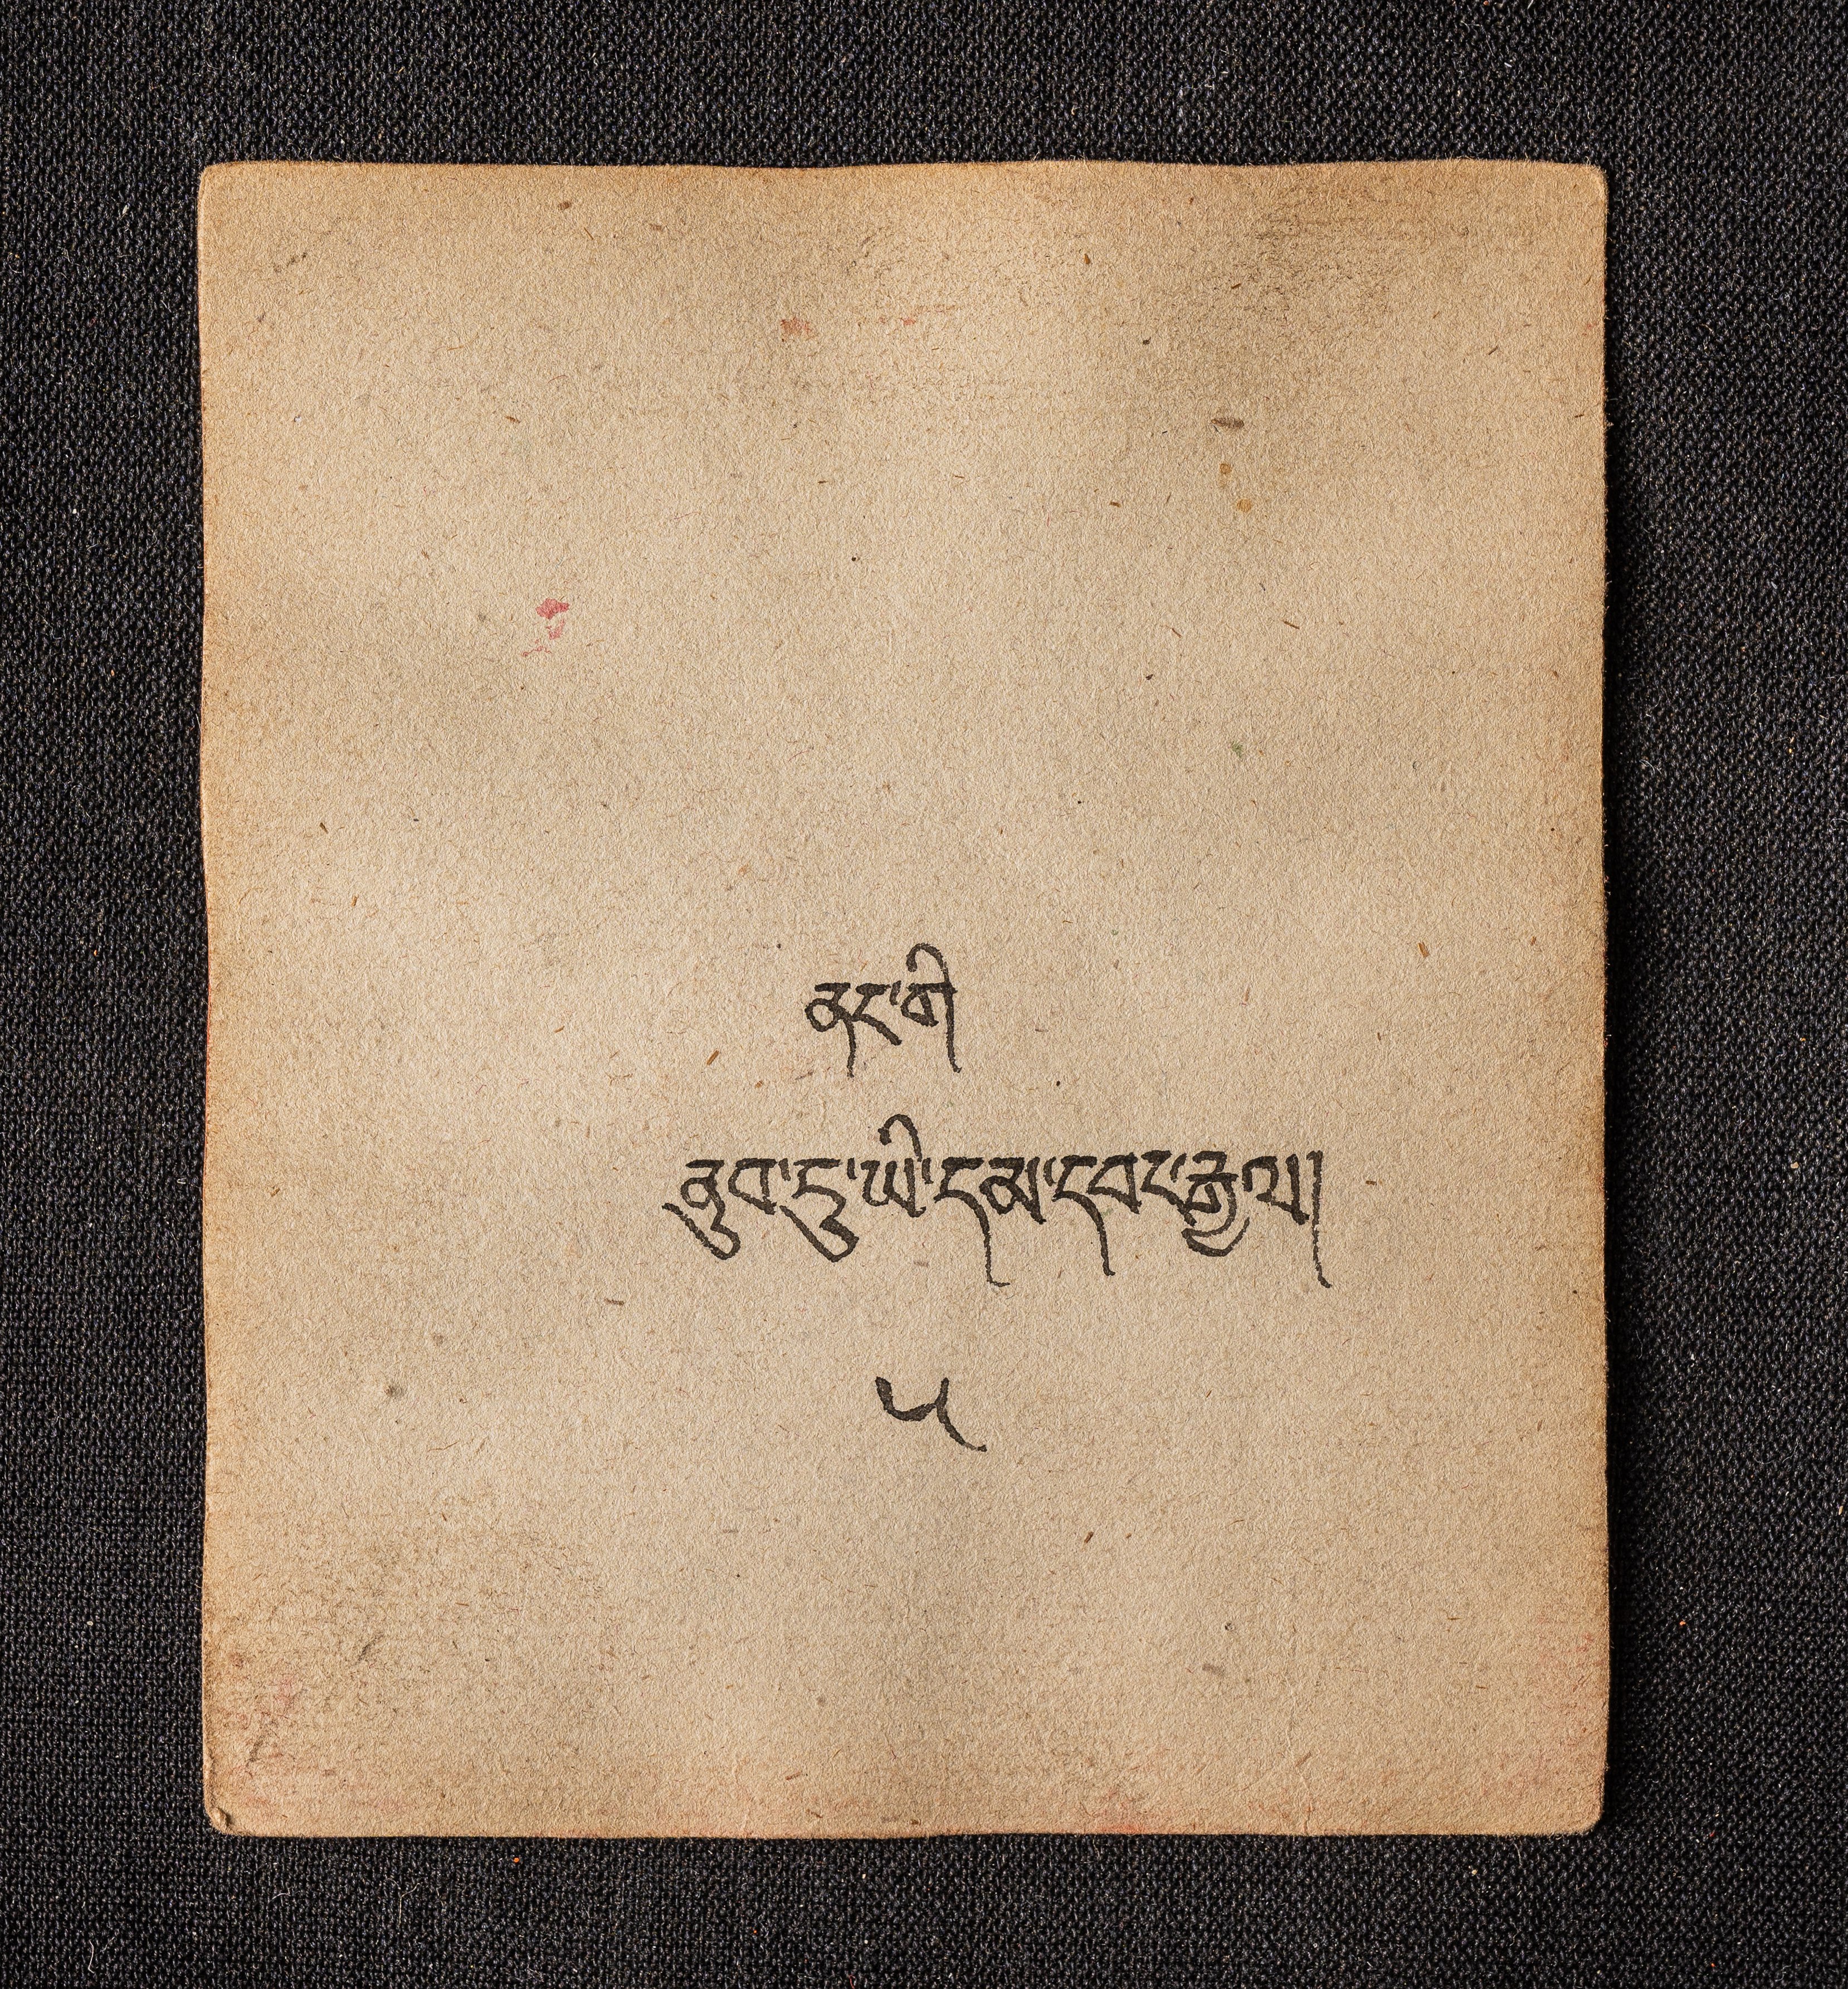 ནང་གི
ནུབ་ཏུ་ཡི་དམ་དབང་རྒྱལ།
༥